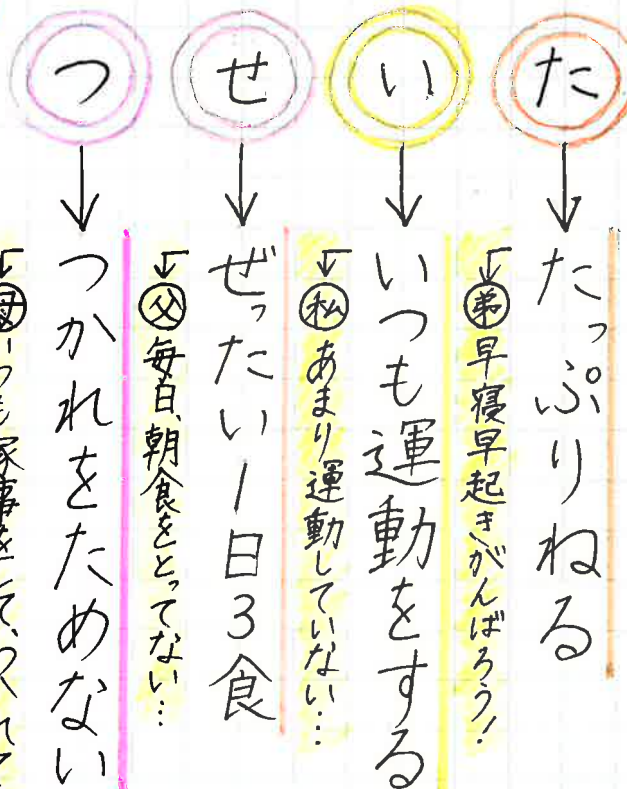 た
たっぷりねる
弟 早寝早起きがんばろう!
い
いつも運動をする
私 あまり運動していない…
せ
ぜったい1日3食
父 毎日、朝食をとってない…
つ
つかれをためない
母 いつも家事をして、つかれて